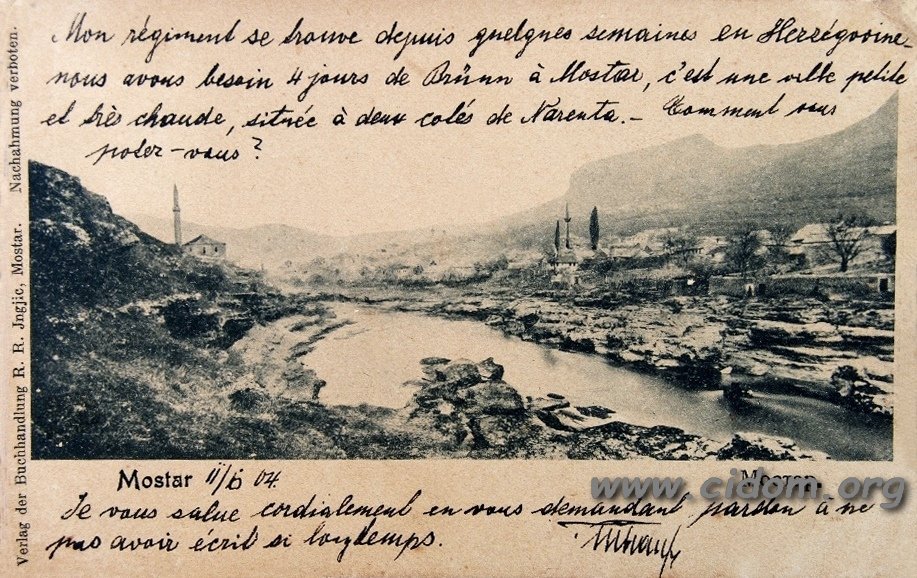 Mon régiment se trouve depuis quelques semaines en Herzégovine-
nous avons besoin 4 jours de Brünn à Mostar, c'est une ville petite
et très chaude, située à deux cotés de Narenta.- Comment vous
potez-vous?
Mostar 11/6 04.
www.cidom.org
Je vous salue cordialement en vous demandant pardon à ne
pas avoir ecrit si longtemps.
Verlag der Buchhandlung R. R. Jngjic, Mostar. Nachahmung verboten.